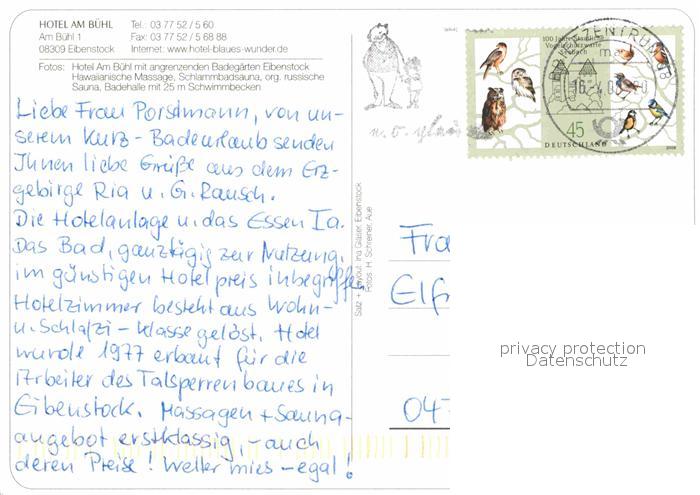 HOTEL AM BÜHL
Am Bühl 1
08309 Eibenstock
Tel.: 03 77 52 / 5 60
Fax: 03 77 52 / 5 68 88
Internet: www.hotel-blaues-wunder.de
Fotos: Hotel Am Bühl mit angrenzenden Badegärten Eibenstock
Hawaiianische Massage, Schlammbadsauna, org. russische
Sauna, Badehalle mit 25 m Schwimmbecken
Liebe Frau Porstmann, von un-
serem Kurz-Badeurlaub senden
Ihnen liebe Grüße aus dem Erz-
gebirge Ria u. G. Rausch.
Die Hotelanlage u. das Essen Ia.
Das Bad, ganztägig zur Nutzung,
im günstigen Hotelpreis inbegriffen
Hotelzimmer besteht aus Wohn-
u. Schlafzi - klasse gelöst. Hotel
wurde 1977 erbaut für die
Arbeiter des Talsperrenbaues in
Eibenstock. Massagen + Sauna-
angebot erstklassig, - auch
deren Preise! Wetter mies - egal!
Satz + Layout: Ina Gläser, Eibenstock
Fotos: H. Schreiner, Aue
100 Jahre Staatliche
Vogelschutzwarte
Seebach
45
DEUTSCHLAND
2008
BRIEFZENTRUM 08
Fra
Elf
047
privacy protection
Datenschutz